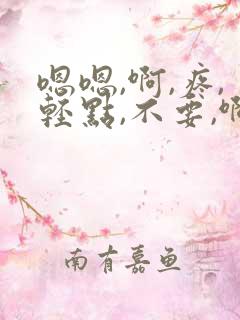 嗯嗯,啊,疼,
輕點,不要,啊
南有嘉鱼